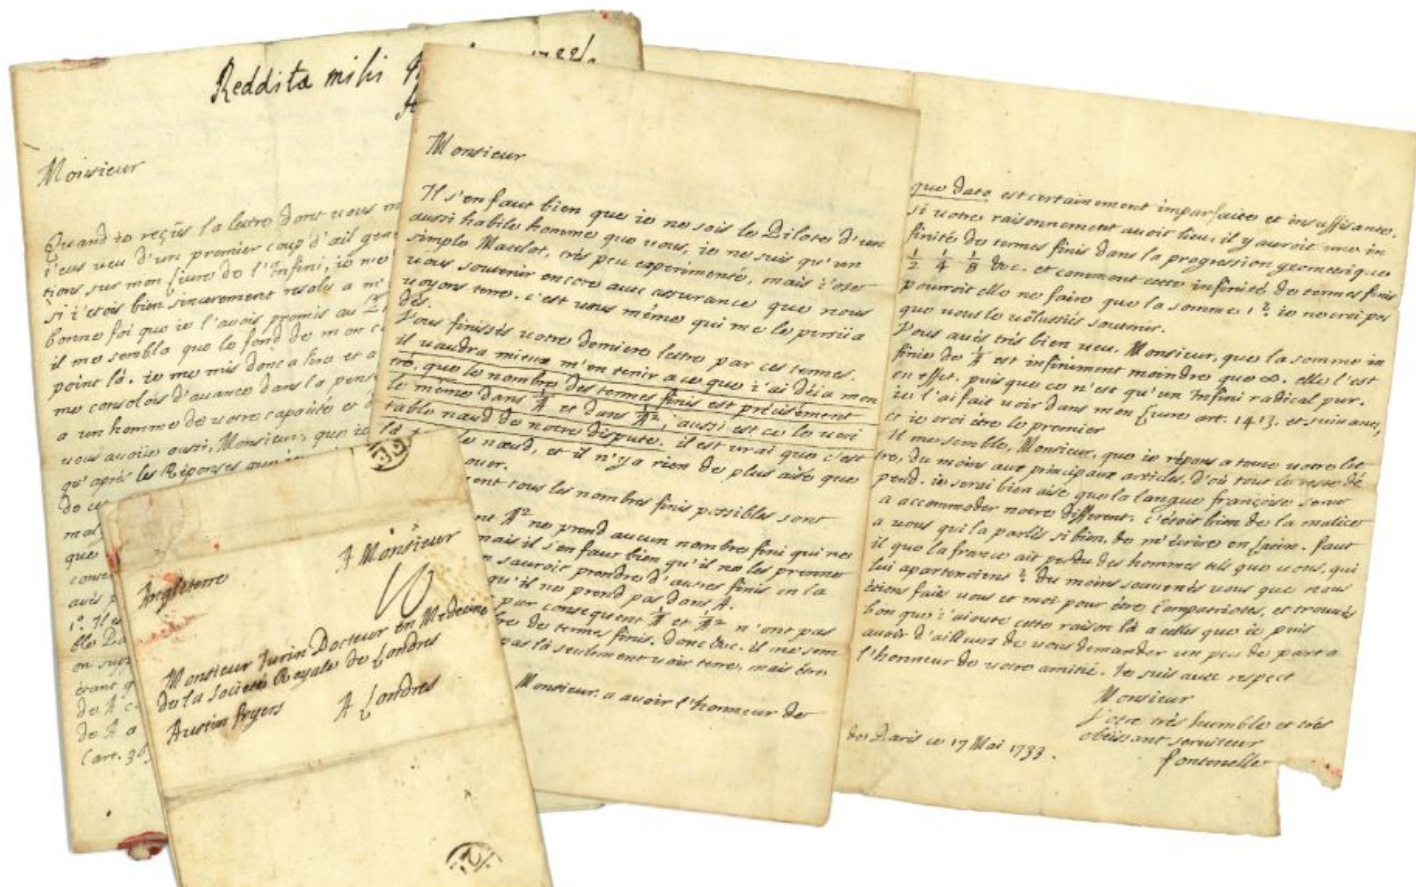 Reddita mihi
Monsieur
Quand ie reçus la lettre dont vous m
i'eus veu d'un premier coup d'œil gene
tions sur mon Livre de l'Infini, ie me
si i'etois bien sincerement resolu a m'
bonne foi que ie l'avois promis au
il me sembla que le fond de mon c
point là. ie me mis donc a lire et a
me consolois d'avance dans la pensé
a un homme de votre capacité et d
vous avoüe aussi, Monsieur, que ie
qu'aprés les Réponses que
de ce
mal
que
conse
avés p
1º. Il es
ble
on sup
étant q
de A c
de A a
(art. 36
Monsieur
Il s'en faut bien que ie ne sois le Pilote d'un
aussi habile homme que vous, ie ne suis qu'un
simple Matelot, trés peu experimenté, mais i'ose
vous soutenir encore avec assurance que nous
voyons terre. c'est vous même qui me le
dés.
Vous finissés votre derniere lettre par ces termes.
il vaudra mieux m'en tenir a ce que i'ai deja mon
tré, que le nombre des termes finis est précisément
le même dans 1/A et dans 1/A², aussi est ce le veri
table nœud de notre dispute. il est vrai que c'est
là le nœud, et il n'y a rien de plus aisé que
ouer.
ent tous les nombres finis possibles sont
nt A² ne prend aucun nombre fini qui ne
mais il s'en faut bien qu'il ne les prenne
n sauroit prendre d'autres finis en la
qu'il ne prend pas dans A.
par consequent 1/A et 1/A² n'ont pas
re de termes finis. Donc &c. il me sem
pas là seulement voir terre, mais être
Monsieur, a avoir l'honneur de
que date est certainement imparfaite et insuffisante.
si votre raisonnement avoit lieu, il y auroit une in
finité de termes finis dans la progression geometrique
1/2 1/4 1/8 &c. et comment cette infinité de termes finis
pourroit elle ne faire que la somme 1? ie ne croi pas
que vous le voulussiés soutenir.
Vous avés trés bien veu, Monsieur, que la somme in
finie de 1/A est infiniment moindre que ∞. elle l'est
en effet, puisque ce n'est qu'un Infini radical pur.
ie l'ai fait voir dans mon Livre art. 1413. et suivans,
et ie croi être le premier
Il me semble, Monsieur, que ie répons a toute votre let
tre, du moins aux principaux articles, d'où tout le reste dé
pend. ie serai bien aise que la langue françoise serve
a accommoder notre different. c'étoit bien de la malice
a vous qui la parlés si bien, de m'écrire en Latin. Faut
il que la france ait perdu des hommes tels que vous, qui
lui apartenoient? du moins souvenés vous que nous
étions faits vous et moi pour être Compatriotes, et trouvés
bon que i'ajoute cette raison là a celles que ie puis
avoir d'ailleurs de vous demander un peu de part a
l'honneur de votre amitié. Je suis avec respect
Monsieur
Votre trés humble et trés
obéissant serviteur
Fontenelle
de Paris ce 17 Mai 1733.
Angleterre
A Monsieur
Monsieur Jurin Docteur en Medecine
de la Societé Royale de Londres
Austin fryers A Londres